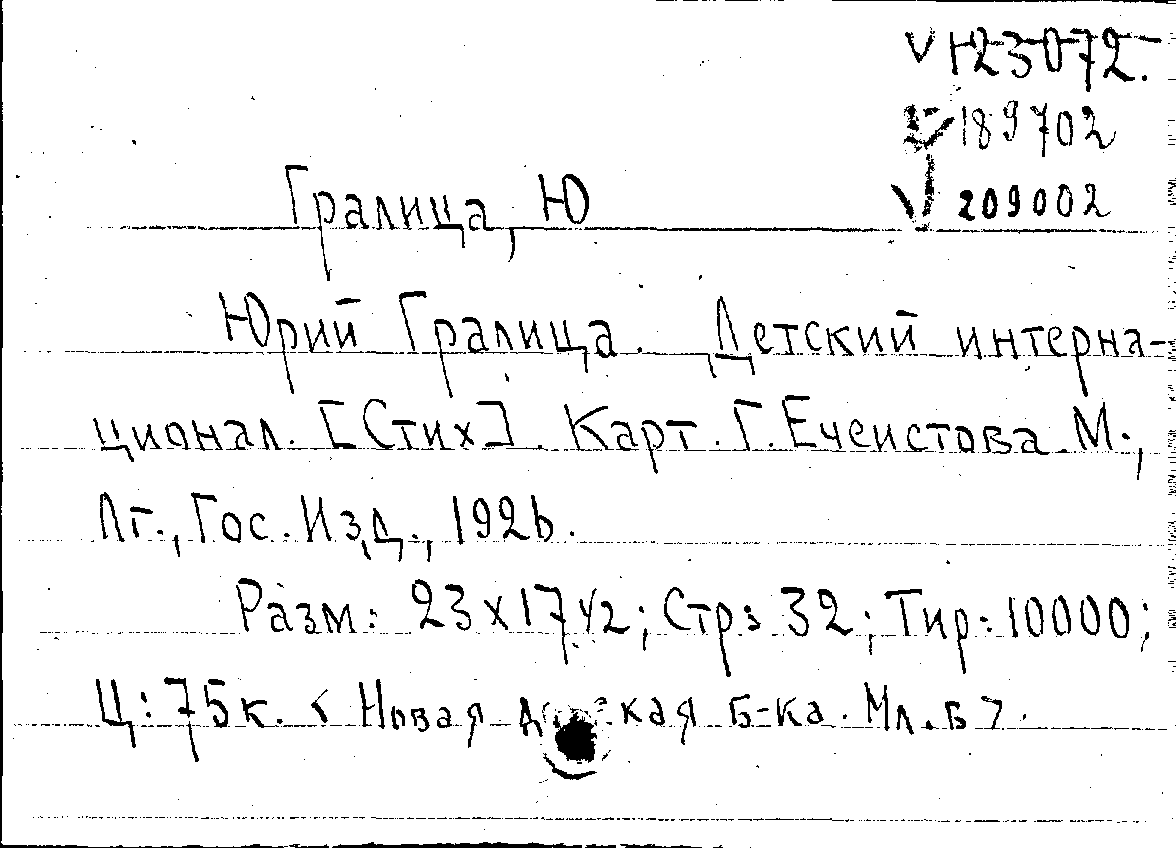 V 123072.
V 189702
V 209002
Гралица, Ю
Юрий Гралица. Детский интерна-
ционал. [Стих]. Карт. Г. Ечеистова. М.,
Лг., Гос. Изд., 1926.
Разм: 23x17 1/2; Стр: 32; Тир: 10000;
Ц: 75к. < Новая б-ка. Мл. Б >.